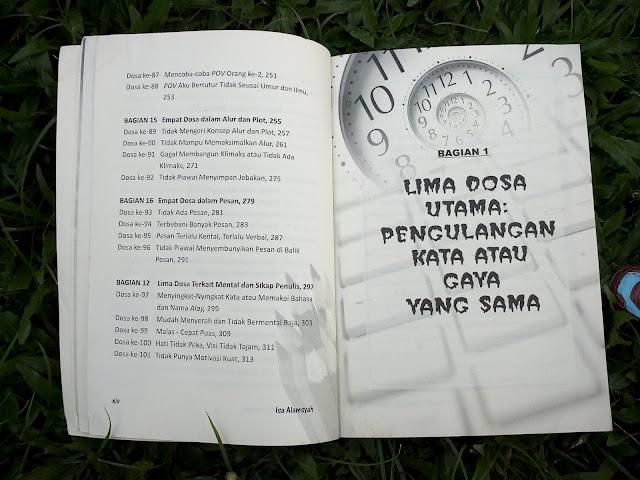 Dosa ke-87 Mencoba-coba POV Orang ke-2, 251
Dosa ke-88 POV Aku Bertutur Tidak Seusai Umur dan Ilmu,
253
BAGIAN 15 Empat Dosa dalam Alur dan Plot, 255
Dosa ke-89 Tidak Mengeri Konsep Alur dan Plot, 257
Dosa ke-90 Tidak Mampu Memaksimalkan Alur, 261
Dosa ke-91 Gagal Membangun Klimaks atau Tidak Ada
Klimaks, 271
Dosa ke-92 Tidak Piawai Menyimpan Jobakan, 275
BAGIAN 16 Empat Dosa dalam Pesan, 279
Dosa ke-93 Tidak Ada Pesan, 281
Dosa ke-94 Terbebani Banyak Pesan, 283
Dosa ke-95 Pesan Terlalu Kental, Terlalu Verbal, 287
Dosa ke-96 Tidak Piawai Menyembunyikan Pesan di Balik
Pesan, 291
BAGIAN 12 Lima Dosa Terkait Mental dan Sikap Penulis, 297
Dosa ke-97 Menyingkat-Nyingkat Kata atau Memakai Bahasa
dan Nama Alay, 299
Dosa ke-98 Mudah Menyerah dan Tidak Bermental Baja, 303
Dosa ke-99 Malas - Cepat Puas, 309
Dosa ke-100 Hati Tidak Peka, Visi Tidak Tajam, 311
Dosa ke-101 Tidak Punya Motivasi Kuat, 313
xiv
Isa Alamsyah
11 12 1 2 3
10
9
11 12 1 2 3 4
10
9
BAGIAN 1
LIMA DOSA
UTAMA:
PENGULANGAN
KATA ATAU
GAYA
YANG SAMA